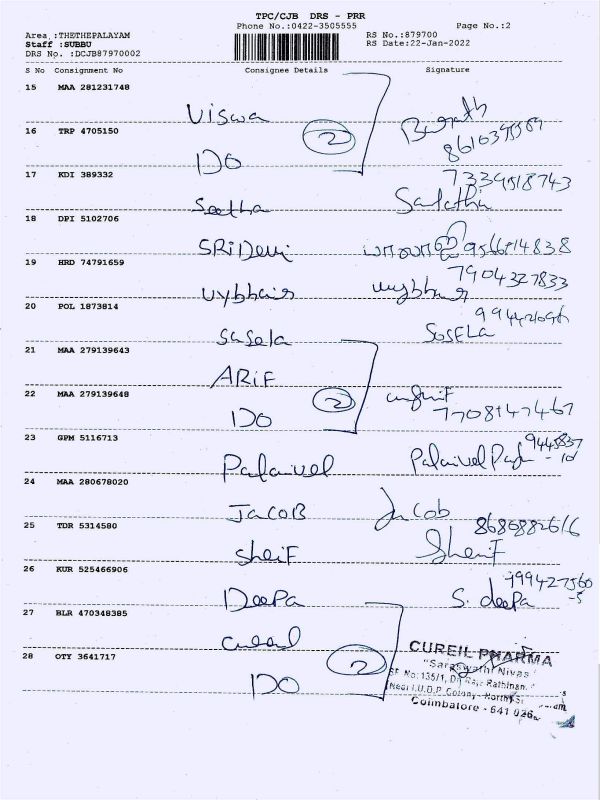 TPC/CJB DRS - PRR
Phone No.:0422-3505555 Page No.:2
Area :THETHEPALAYAM RS No.:879700
Staff :SUBBU RS Date:22-Jan-2022
DRS No. :DCJB87970002
S No Consignment No Consignee Details Signature
15 MAA 281231748
Viswa
16 TRP 4705150 2
DO
17 KDI 389332 7339518743
Seetha
18 DPI 5102706
SRIDevi
19 HRD 74791659 7904327833
Vybhav
20 POL 1873814
Sasela SOSELA
21 MAA 279139643
ARIF
22 MAA 279139648 2
DO 7708147467
23 GPM 5116713
Palanivel
24 MAA 280678020
JACOB Jacob
25 TDR 5314580
Sheif Sherif
26 KUR 525466906
DeePa S. deepa
27 BLR 470348385
Cureil CUREIL PHARMA
28 OTY 3641717 2 "Saraswathi Nivas"
SF No:135/1, Dr. Raja Rathinan
DO Near I.U.D.P Colony
Coimbatore - 641 026